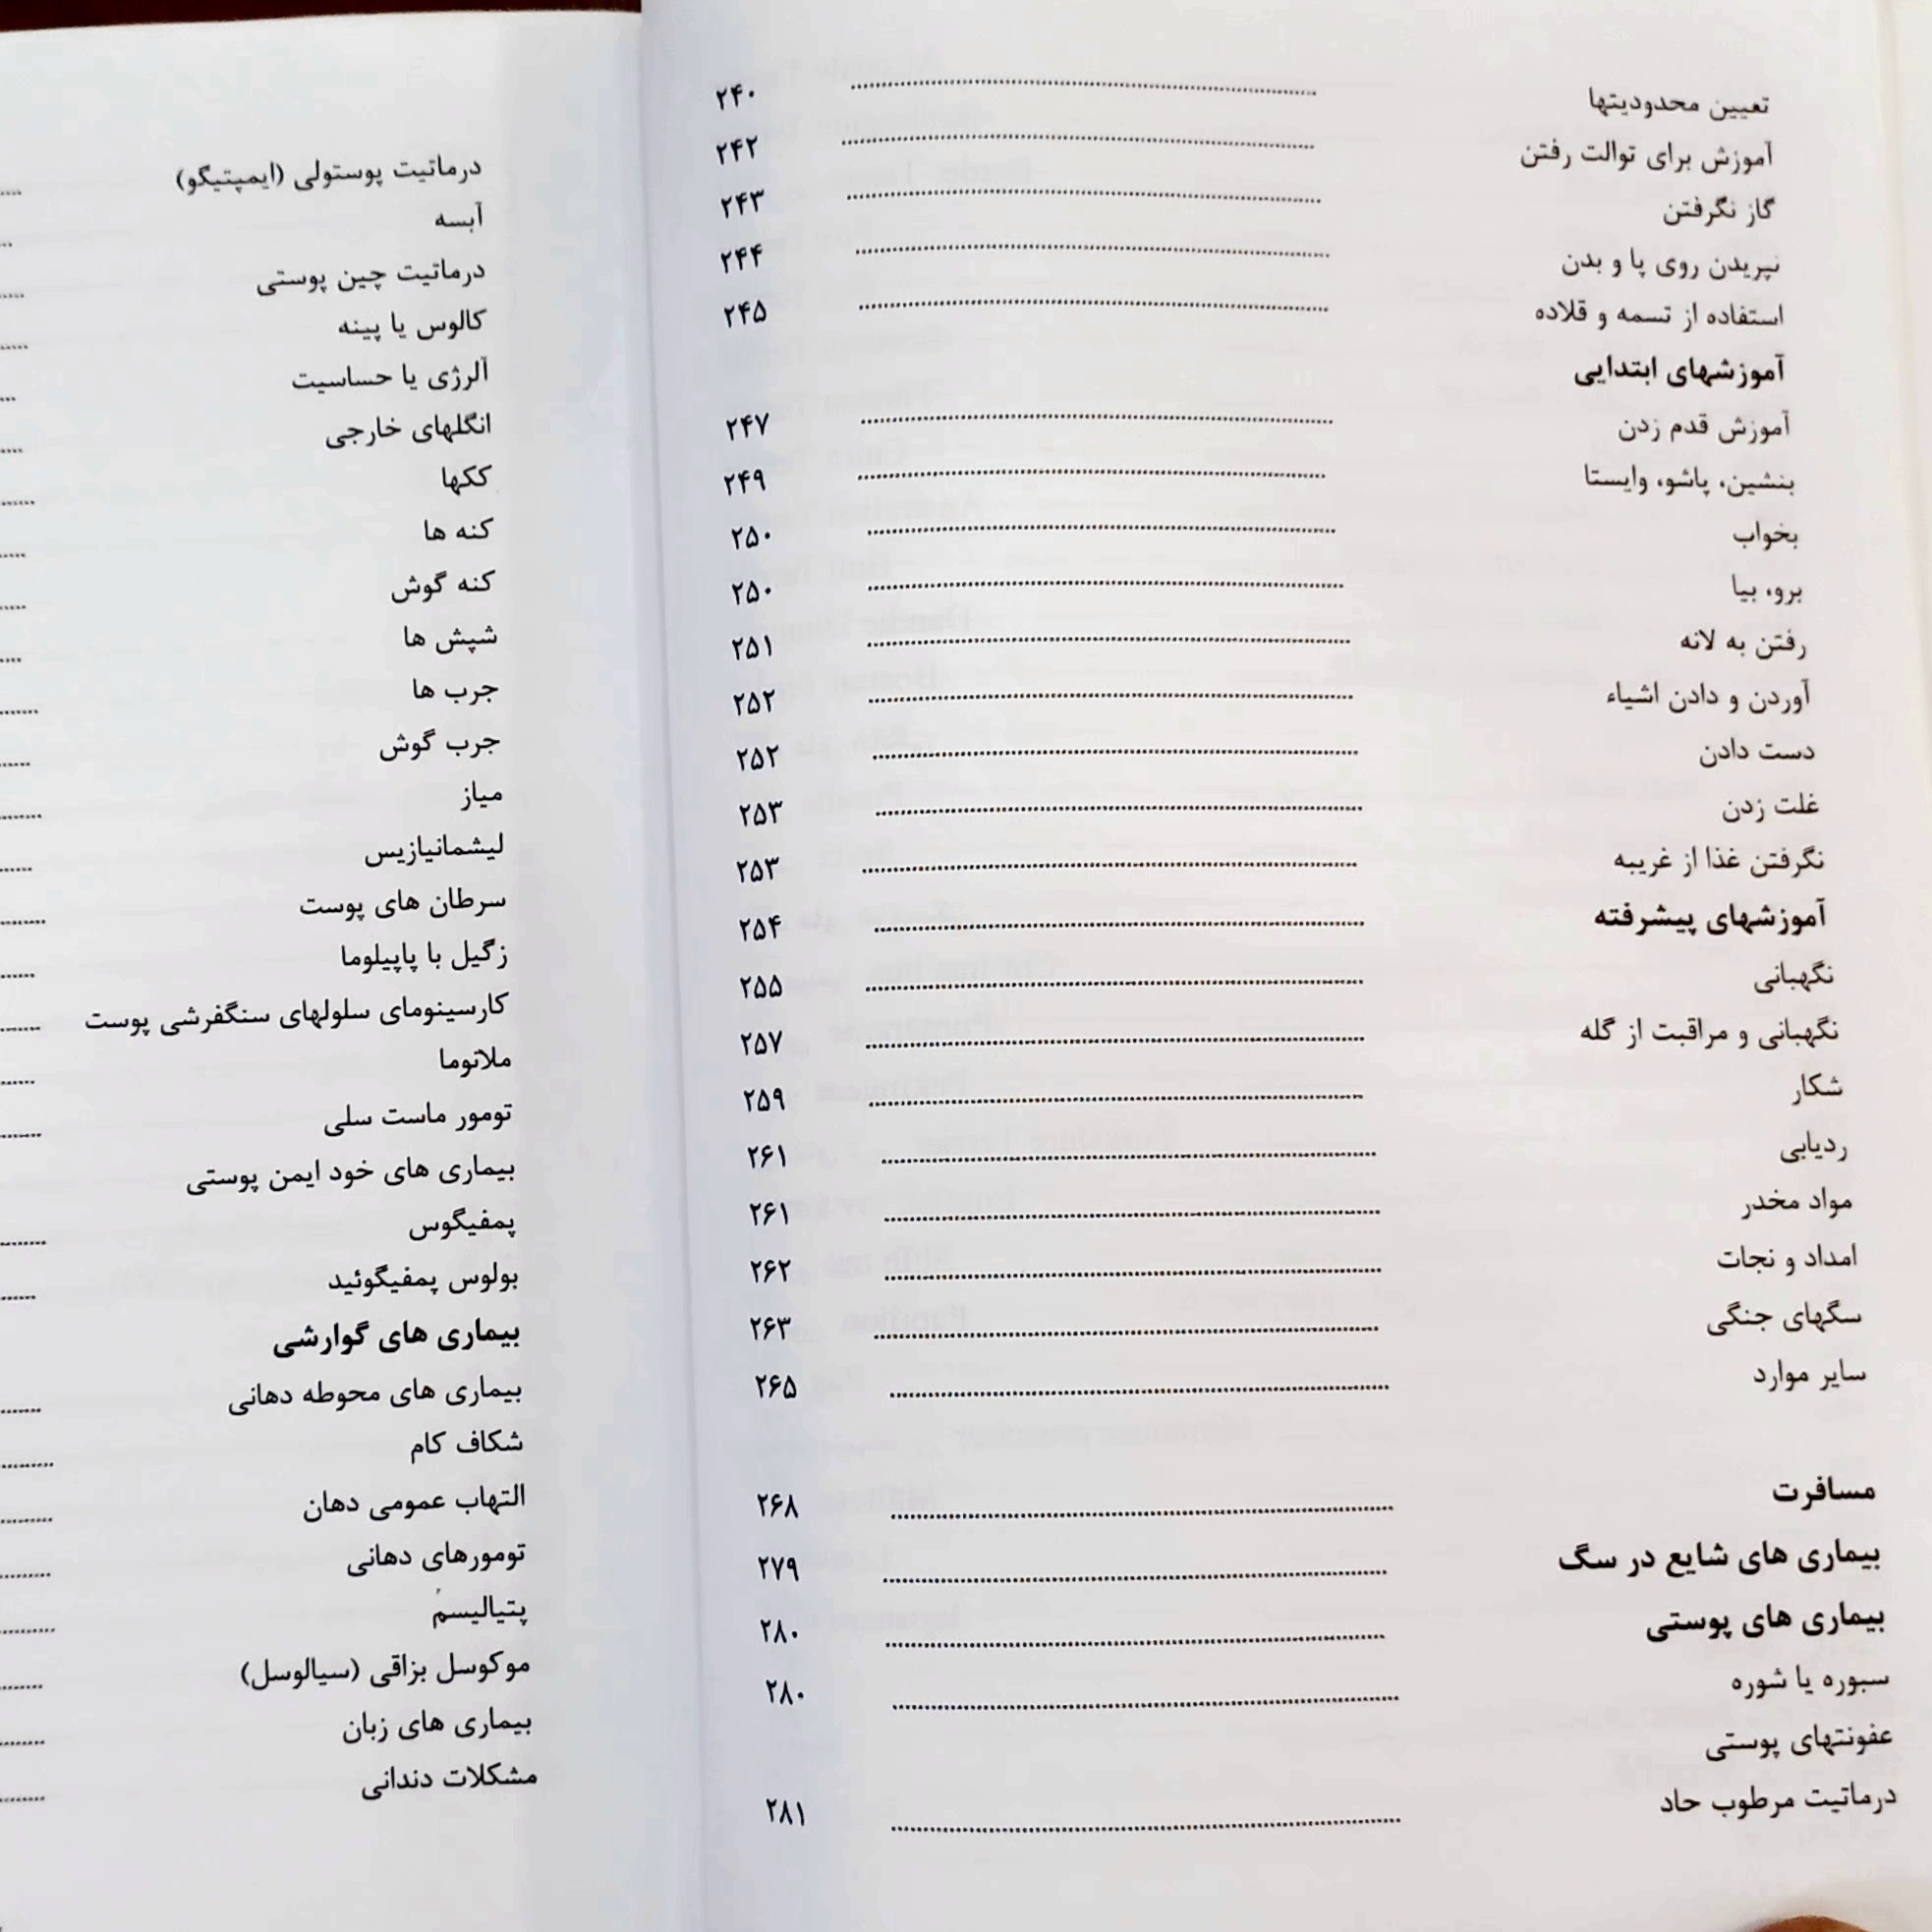 تعیین محدودیتها ........ ۲۴۰
آموزش برای توالت رفتن ........ ۲۴۲
گاز نگرفتن ........ ۲۴۳
نپریدن روی پا و بدن ........ ۲۴۴
استفاده از تسمه و قلاده ........ ۲۴۵
آموزشهای ابتدایی
آموزش قدم زدن ........ ۲۴۷
بنشین، پاشو، وایستا ........ ۲۴۹
بخواب ........ ۲۵۰
برو، بیا ........ ۲۵۰
رفتن به لانه ........ ۲۵۱
آوردن و دادن اشیاء ........ ۲۵۲
دست دادن ........ ۲۵۲
غلت زدن ........ ۲۵۳
نگرفتن غذا از غریبه ........ ۲۵۳
آموزشهای پیشرفته ........ ۲۵۴
نگهبانی ........ ۲۵۵
نگهبانی و مراقبت از گله ........ ۲۵۷
شکار ........ ۲۵۹
ردیابی ........ ۲۶۱
مواد مخدر ........ ۲۶۱
امداد و نجات ........ ۲۶۲
سگهای جنگی ........ ۲۶۳
سایر موارد ........ ۲۶۵
مسافرت ........ ۲۶۸
بیماری های شایع در سگ ........ ۲۷۹
بیماری های پوستی ........ ۲۸۰
سبوره یا شوره ........ ۲۸۰
عفونتهای پوستی
درماتیت مرطوب حاد ........ ۲۸۱
درماتیت پوستولی (ایمپتیگو) ........
آبسه ........
درماتیت چین پوستی ........
کالوس یا پینه ........
آلرژی یا حساسیت ........
انگلهای خارجی ........
ککها ........
کنه ها ........
کنه گوش ........
شپش ها ........
جرب ها ........
جرب گوش ........
میاز ........
لیشمانیازیس ........
سرطان های پوست ........
زگیل با پاپیلوما ........
کارسینومای سلولهای سنگفرشی پوست ........
ملانوما ........
تومور ماست سلی ........
بیماری های خود ایمن پوستی
پمفیگوس ........
بولوس پمفیگوئید ........
بیماری های گوارشی
بیماری های محوطه دهانی ........
شکاف کام ........
التهاب عمومی دهان ........
تومورهای دهانی ........
پتیالیسم ........
موکوسل بزاقی (سیالوسل) ........
بیماری های زبان ........
مشکلات دندانی ........